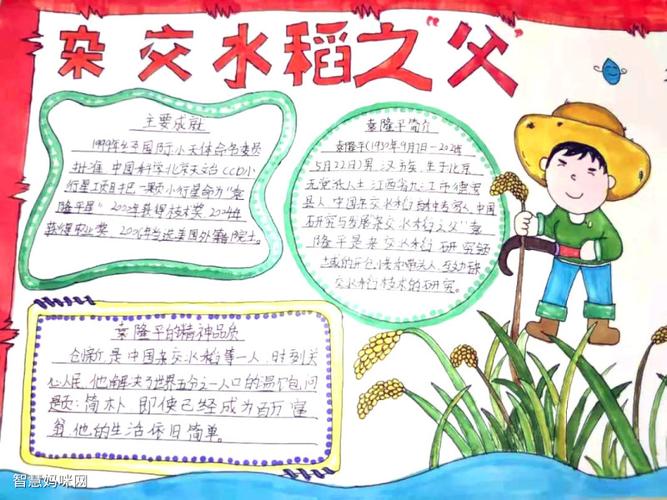 杂交水稻之"父"
主要成就
1999年经国际小天体命名委员会
批准，中国科学北京天文台CCD小
行星项目把一颗小行星命为"袁
隆平星"2000年获得技术奖，2004年
获 农业奖 2006年当选美国外籍院士。
袁隆平简介
袁隆平(1930年9月7日—2021年
5月22日)男 汉族 生于北京
无党派人士 江西省九江市德安
县人 中国杂交水稻育种专家 中国
研究与发展杂交水稻之父"袁
隆平是杂交水稻研究领
域的开创 和带头人 致力
交水稻技术的研究。
袁隆平的精神品质
创新是中国杂交水稻第一人，时刻关
心人民，他解决了世界五分之一人口的温饱问
题：简朴 即使已经成为百万富
翁他的生活依旧简单。
智慧妈咪网